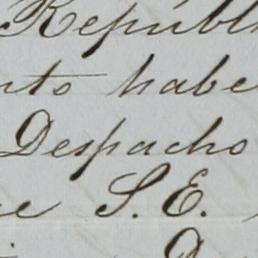 Repúbli
nto habe
Despacho
e S. E.